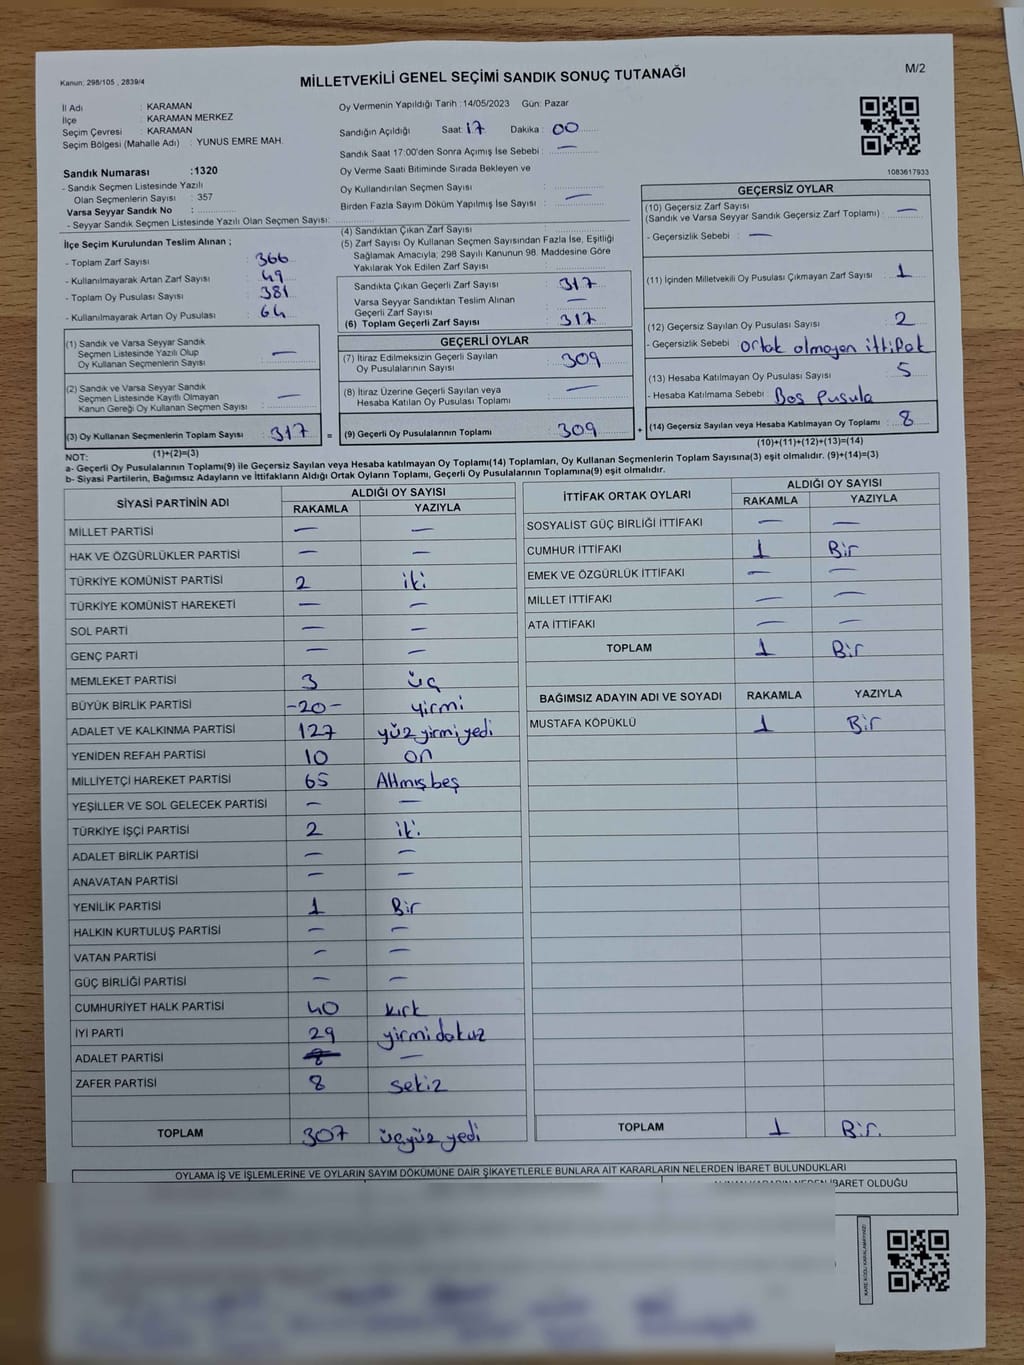 Kanun: 298/105 , 2839/4
MİLLETVEKİLİ GENEL SEÇİMİ SANDIK SONUÇ TUTANAĞI
M/2
İl Adı : KARAMAN
İlçe : KARAMAN MERKEZ
Seçim Çevresi : KARAMAN
Seçim Bölgesi (Mahalle Adı) : YUNUS EMRE MAH.
Sandık Numarası :1320
- Sandık Seçmen Listesinde Yazılı
Olan Seçmenlerin Sayısı : 357
Varsa Seyyar Sandık No :
- Seyyar Sandık Seçmen Listesinde Yazılı Olan Seçmen Sayısı:
Oy Vermenin Yapıldığı Tarih :14/05/2023 Gün: Pazar
Sandığın Açıldığı Saat: 17 Dakika : 00
Sandık Saat 17:00'den Sonra Açımış İse Sebebi : —
Oy Verme Saati Bitiminde Sırada Bekleyen ve
Oy Kullandırılan Seçmen Sayısı :
Birden Fazla Sayım Döküm Yapılmış İse Sayısı : —
1083617933
İlçe Seçim Kurulundan Teslim Alınan ;
- Toplam Zarf Sayısı : 366
- Kullanılmayarak Artan Zarf Sayısı : 49
- Toplam Oy Pusulası Sayısı : 381
- Kullanılmayarak Artan Oy Pusulası : 64
(1) Sandık ve Varsa Seyyar Sandık
Seçmen Listesinde Yazılı Olup
Oy Kullanan Seçmenlerin Sayısı : —
(2) Sandık ve Varsa Seyyar Sandık
Seçmen Listesinde Kayıtlı Olmayan
Kanun Gereği Oy Kullanan Seçmen Sayısı : —
(3) Oy Kullanan Seçmenlerin Toplam Sayısı : 317 =
(1)+(2)=(3)
(4) Sandıktan Çıkan Zarf Sayısı :
(5) Zarf Sayısı Oy Kullanan Seçmen Sayısından Fazla İse, Eşitliği
Sağlamak Amacıyla; 298 Sayılı Kanunun 98. Maddesine Göre
Yakılarak Yok Edilen Zarf Sayısı :
Sandıkta Çıkan Geçerli Zarf Sayısı : 317
Varsa Seyyar Sandıktan Teslim Alınan
Geçerli Zarf Sayısı : —
(6) Toplam Geçerli Zarf Sayısı : 317
GEÇERLİ OYLAR
(7) İtiraz Edilmeksizin Geçerli Sayılan
Oy Pusulalarının Sayısı : 309
(8) İtiraz Üzerine Geçerli Sayılan veya
Hesaba Katılan Oy Pusulası Toplamı : —
(9) Geçerli Oy Pusulalarının Toplamı : 309 +
GEÇERSİZ OYLAR
(10) Geçersiz Zarf Sayısı
(Sandık ve Varsa Seyyar Sandık Geçersiz Zarf Toplamı) : —
- Geçersizlik Sebebi : —
(11) İçinden Milletvekili Oy Pusulası Çıkmayan Zarf Sayısı : 1
(12) Geçersiz Sayılan Oy Pusulası Sayısı : 2
- Geçersizlik Sebebi : ortak olmayan ittifak
(13) Hesaba Katılmayan Oy Pusulası Sayısı : 5
- Hesaba Katılmama Sebebi : Boş Pusula
(14) Geçersiz Sayılan veya Hesaba Katılmayan Oy Toplamı : 8
(10)+(11)+(12)+(13)=(14)
NOT:
a- Geçerli Oy Pusulalarının Toplamı(9) ile Geçersiz Sayılan veya Hesaba katılmayan Oy Toplamı(14) Toplamları, Oy Kullanan Seçmenlerin Toplam Sayısına(3) eşit olmalıdır. (9)+(14)=(3)
b- Siyasi Partilerin, Bağımsız Adayların ve İttifakların Aldığı Ortak Oyların Toplamı, Geçerli Oy Pusulalarının Toplamına(9) eşit olmalıdır.
SİYASİ PARTİNİN ADI ALDIĞI OY SAYISI
RAKAMLA YAZIYLA
MİLLET PARTİSİ — —
HAK VE ÖZGÜRLÜKLER PARTİSİ — —
TÜRKİYE KOMÜNİST PARTİSİ 2 iki
TÜRKİYE KOMÜNİST HAREKETİ — —
SOL PARTİ — —
GENÇ PARTİ — —
MEMLEKET PARTİSİ 3 üç
BÜYÜK BİRLİK PARTİSİ -20- yirmi
ADALET VE KALKINMA PARTİSİ 127 yüz yirmi yedi
YENİDEN REFAH PARTİSİ 10 on
MİLLİYETÇİ HAREKET PARTİSİ 65 Altmış beş
YEŞİLLER VE SOL GELECEK PARTİSİ — —
TÜRKİYE İŞÇİ PARTİSİ 2 iki
ADALET BİRLİK PARTİSİ — —
ANAVATAN PARTİSİ — —
YENİLİK PARTİSİ 1 Bir
HALKIN KURTULUŞ PARTİSİ — —
VATAN PARTİSİ — —
GÜÇ BİRLİĞİ PARTİSİ — —
CUMHURİYET HALK PARTİSİ 40 kırk
İYİ PARTİ 29 yirmi dokuz
ADALET PARTİSİ 8 —
ZAFER PARTİSİ 8 sekiz
TOPLAM 307 üçyüz yedi
İTTİFAK ORTAK OYLARI ALDIĞI OY SAYISI
RAKAMLA YAZIYLA
SOSYALİST GÜÇ BİRLİĞİ İTTİFAKI — —
CUMHUR İTTİFAKI 1 Bir
EMEK VE ÖZGÜRLÜK İTTİFAKI — —
MİLLET İTTİFAKI — —
ATA İTTİFAKI — —
TOPLAM 1 Bir
BAĞIMSIZ ADAYIN ADI VE SOYADI RAKAMLA YAZIYLA
MUSTAFA KÖPÜKLÜ 1 Bir
TOPLAM 1 Bir.
OYLAMA İŞ VE İŞLEMLERİNE VE OYLARIN SAYIM DÖKÜMÜNE DAİR ŞİKAYETLERLE BUNLARA AİT KARARLARIN NELERDEN İBARET BULUNDUKLARI
İBARET OLDUĞU
KARE KODU KARALAMAYINIZ!